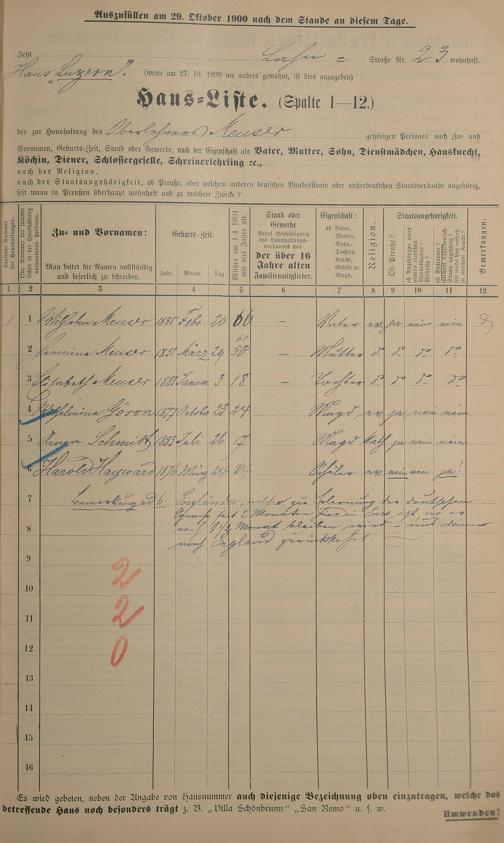 Auszufüllen am 29. Oktober 1900 nach dem Stande an diesem Tage.
Jetzt Lahn = Straße Nr. 23 wohnhaft.
Haus „Luzern". (wenn am 27. 10. 1899 wo anders gewohnt, ist dies anzugeben)
Haus-Liste. (Spalte 1—12.)
der zur Haushaltung des Oberlehrers Menser gehörigen Personen nach Zu- und
Vornamen, Geburts-Zeit, Stand oder Gewerbe, nach der Eigenschaft als Vater, Mutter, Sohn, Dienstmädchen, Hausknecht,
Köchin, Diener, Schlossergeselle, Schreinerlehrling ꝛc.,
nach der Religion,
nach der Staatsangehörigkeit, ob Preuße, oder welchem anderen deutschen Bundesstaate oder außerdeutschen Staatsverbande angehörig,
seit wann in Preußen überhaupt wohnhaft und zu welchem Zwecke?
Zu- und Vornamen:
Man bittet die Namen vollständig und leserlich zu schreiben.
Geburts-Zeit.
Jahr. Monat. Tag
Mithin am 1/4 1901 wie viel Jahre alt.
Stand oder Gewerbe
der über 16 Jahre alten Familienmitglieder.
Eigenschaft:
ob Vater, Mutter, Sohn, Tochter, Knecht, Geselle od. Magd.
Religion.
Staatsangehörigkeit.
Ob Preuße?
Bemerkungen.
1 2 3 4 5 6 7 8 9 10 11 12
1 1 Wilhelm Menser 1835 Febr. 20 66 — Vater ev ja nein nein
2 Hermine Menser 1851 März 29 — Mutter do do do do
3 Elisabeth Menser Januar 3 18 — Tochter do do do do
4 Wilhelmina Göron 1877 Octob 23 24 Magd ev ja nein nein
5 Anna Schmidt 1883 Juli 26 17 Magd kath ja nein nein
6 Harold Hayward 1876 März 24 24 Schüler ev nein nein ja!
7 Bemerkung ad 6. Engländer, welcher zur Erlernung der deutschen
Sprache seit 2 Monaten hier in Ems ist, wo er
8 noch 1 1/2 Monat bleiben wird — und dann
nach England zurückkehrt.
9
10
11
12
13
14
15
16
2
2
0
Es wird gebeten, neben der Angabe von Hausnummer auch diejenige Bezeichnung oben einzutragen, welche das
betreffende Haus noch besonders trägt z. B. „Villa Schönbrunn" „San Remo" u. s. w.
Umwenden!